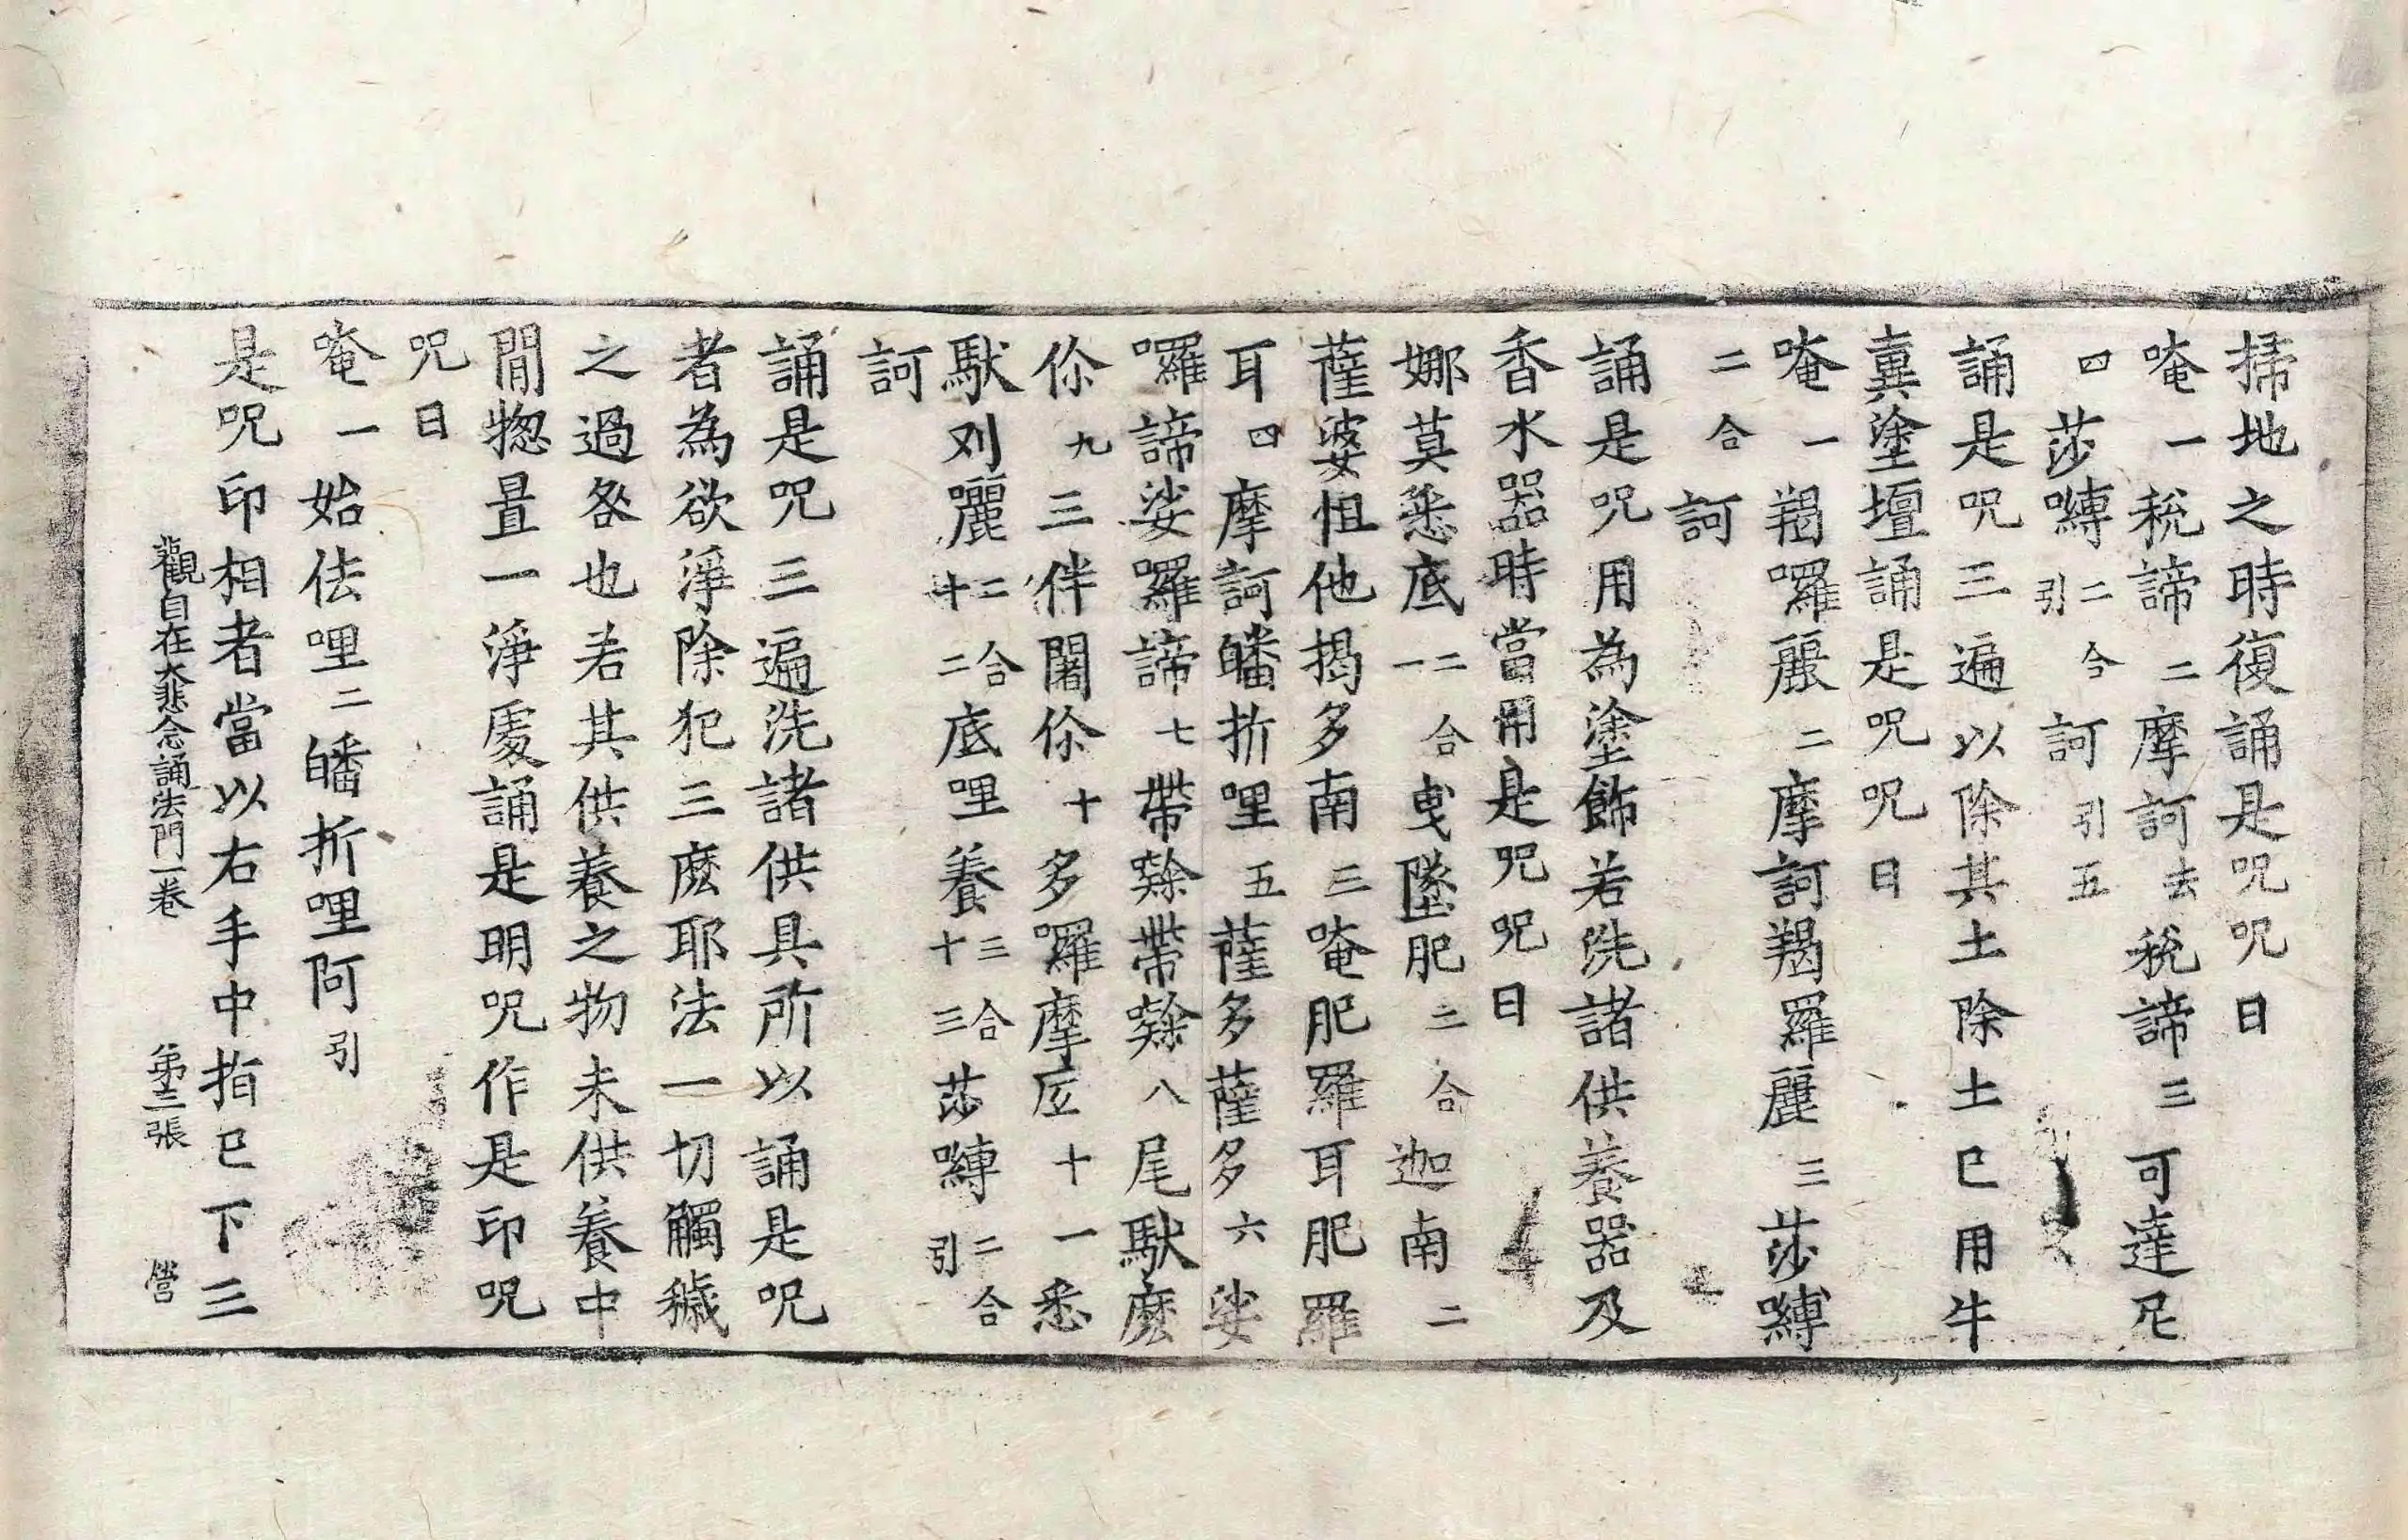 掃地之時復誦是呪呪曰
唵一稅諦二摩訶去稅諦三可達尼
四莎嚩二合引訶引五
誦是呪三遍以除其土除土已用牛
糞塗壇誦是呪呪曰
唵一羯囉麗二摩訶羯羅麗三莎嚩
二合訶
誦是呪用為塗飾若洗諸供養器及
香水器時當用是呪呪曰
娜莫悉底二合一曳墜肥二合迦南二
薩婆怛他揭多南三唵肥羅耳肥羅
耳四摩訶皤折哩五薩多薩多六娑
囉諦娑囉諦七帶㘑帶㘑八尾馱麼
你九三伴闍你十多囉摩底十一悉
馱刘囇二合十二底哩養三合十三莎嚩二合引
訶
誦是呪三遍洗諸供具所以誦是呪
者為欲淨除犯三麼耶法一切觸穢
之過咎也若其供養之物未供養中
間惣置一淨處誦是明呪作是印呪
呪曰
唵一始佉哩二皤折哩阿引
是呪印相者當以右手中指已下三
觀自在大悲念誦法門一卷 第三張 營